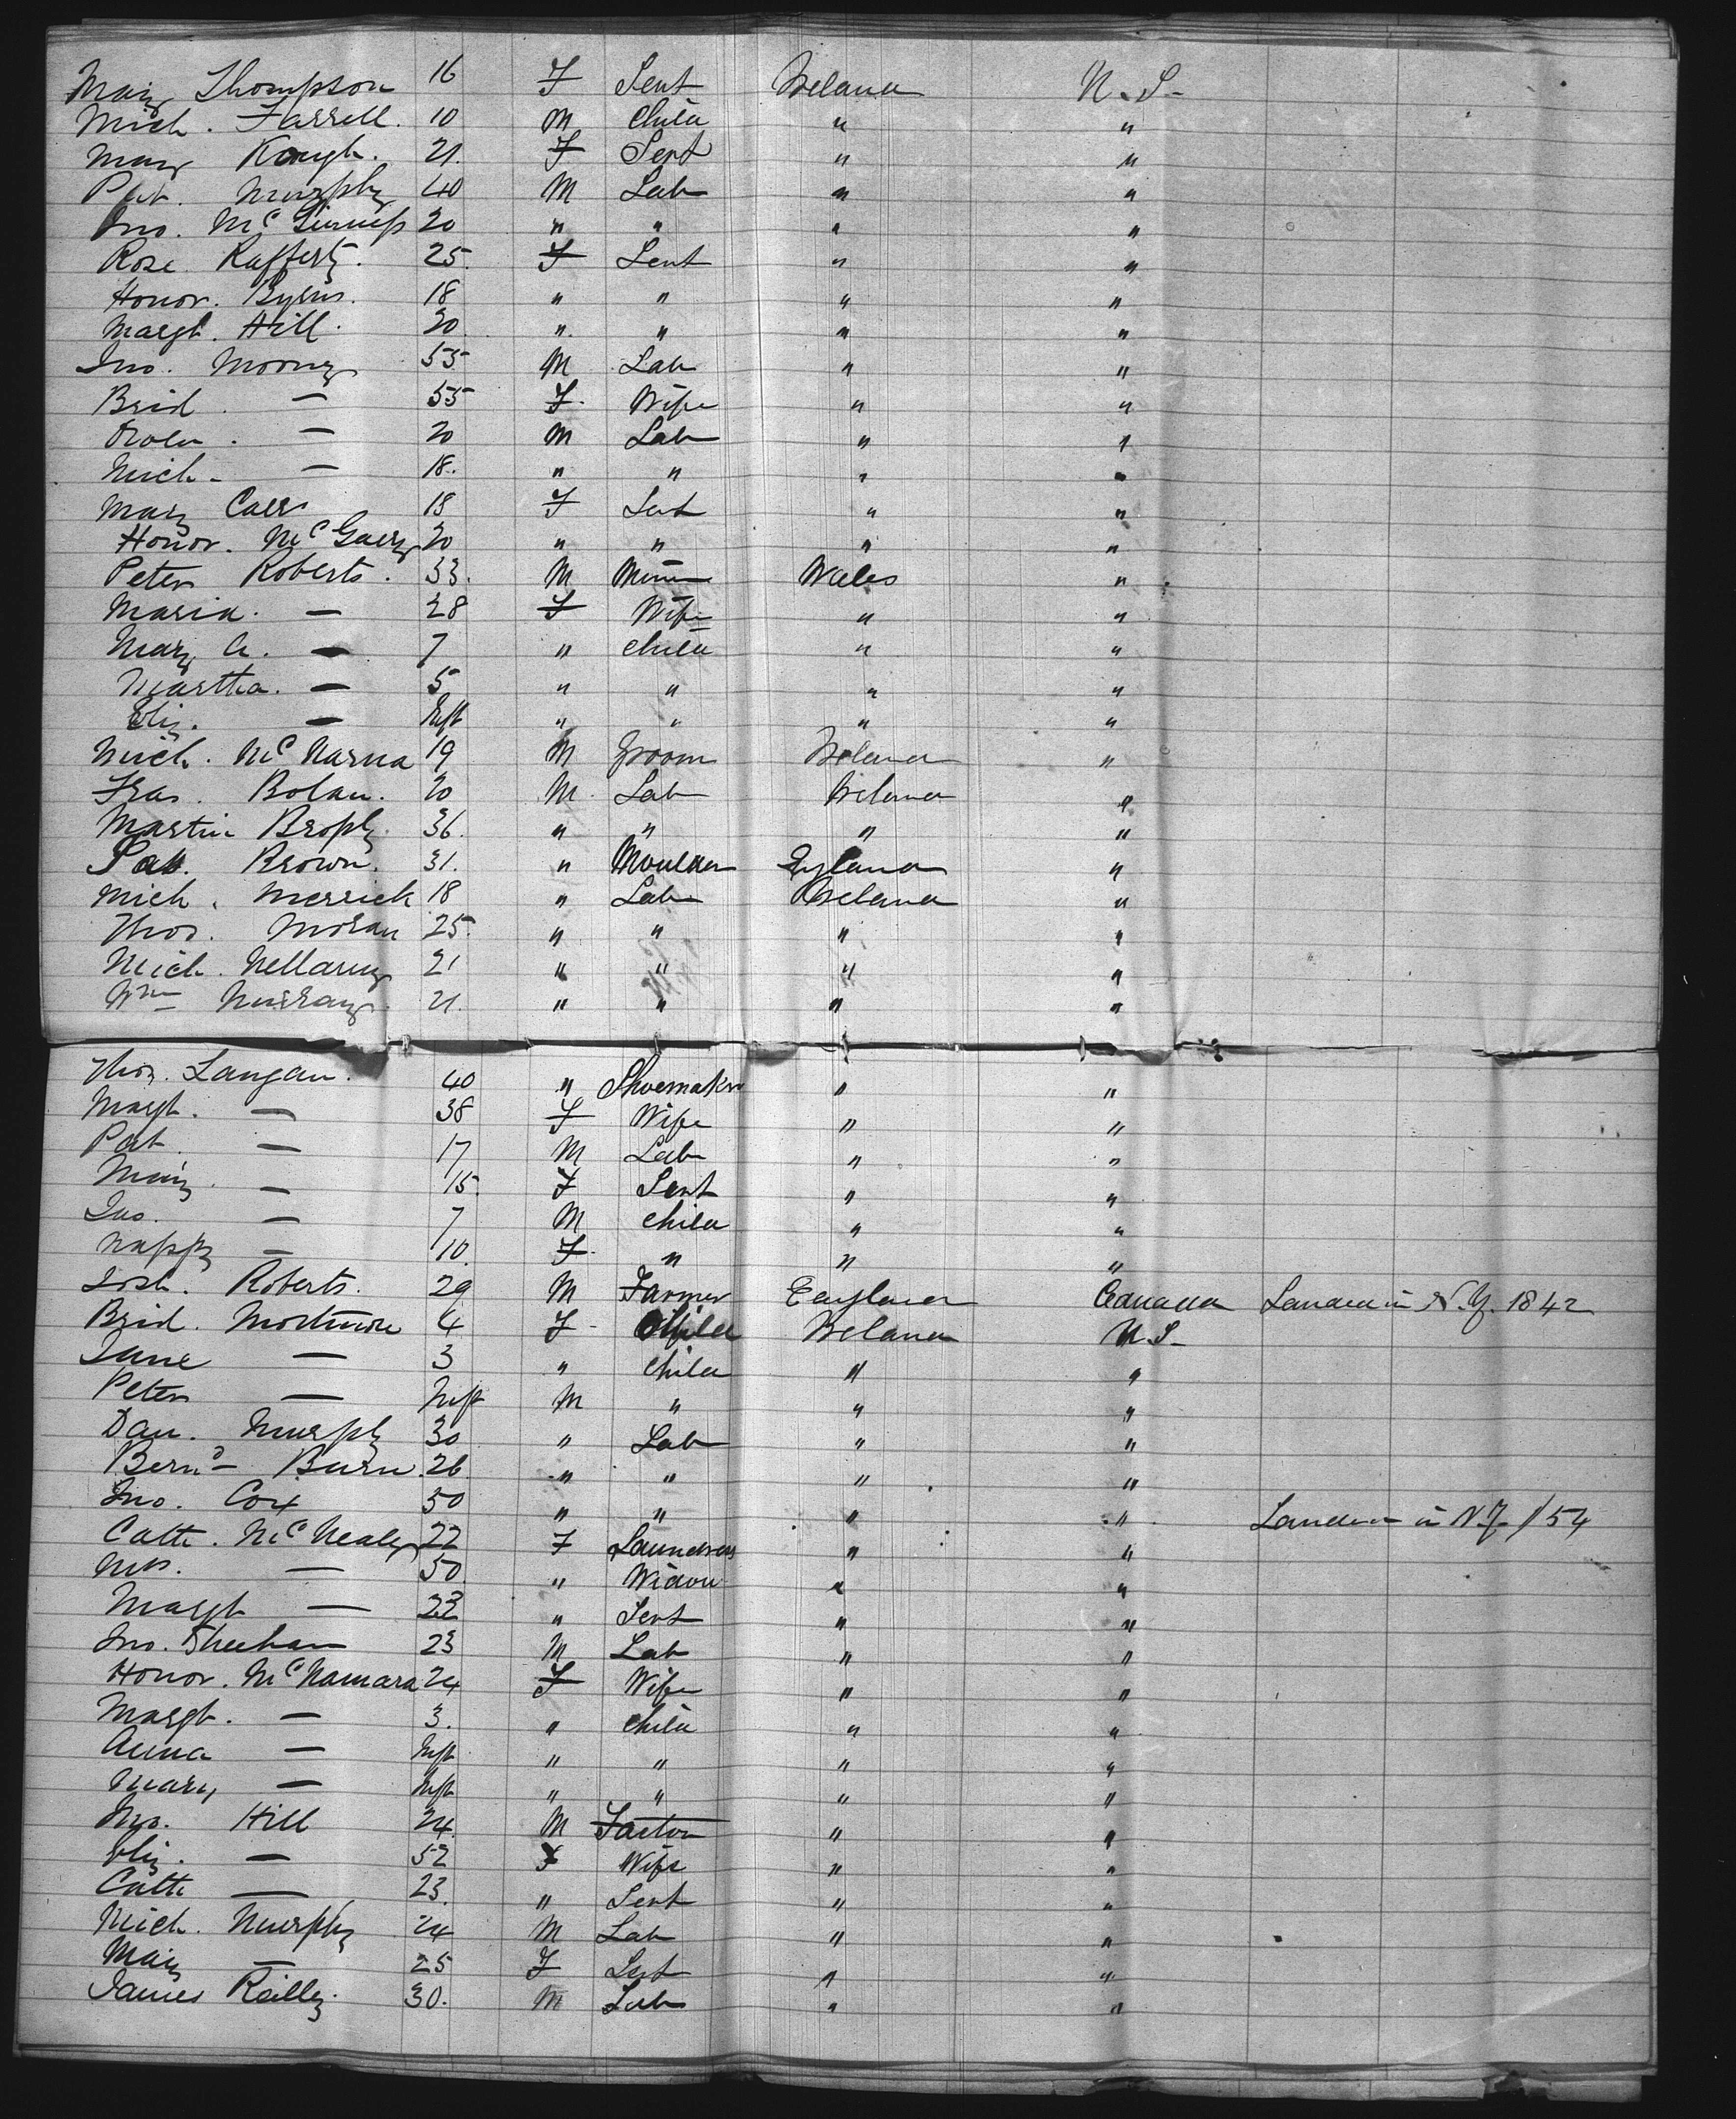 Mary Thompson 16 F Sert Ireland U.S-
Mich. Farrell. 10 M Child " "
Mary Keugh. 21. F Sert " "
Pat. Murphy 40 M Lab " "
Jno. McGinness 20 " " " "
Rose Rafferty. 25. F Sert " "
Honor. Byrns. 18 " " " "
Margt. Hill. 20 " " " "
Jno. Mooney 55 M Lab " "
Brid. — 55 F. Wife " "
— 20 M Lab " "
Mich- — 18. " " " "
Mary Carr 18 F Sert " "
Honor. McGarry 20 " " " "
Peter Roberts. 33. M Miner Wales "
Maria. — 28 F Wife " "
Mary A. — 7 " Child " "
Martha. — 5 " " " "
Eliz. — Inft " " " "
Mich. McNarna 19 M Groom Ireland "
Fras. Bolan. 20 M. Lab Ireland "
Martin Brophy. 36. " " " "
Pat. Brown. 31. " Moulder England "
Mich. Merrick 18 " Lab Ireland "
Thos. Moran 25. " " " "
Mich. 21 " " " "
Wm Murray. 21. " " " "
Thos. Langan. 40 " Shoemaker " "
Margt. — 38 F Wife " "
Pat. — 17 M Lab " "
Mary. — 15. F Sert " "
Jno. — 7 M Child " "
Nappy — 10. F. " " "
Josh. Roberts. 29 M Farmer England Canada Landed in N.Y. 1842
Brid. Mortimore 4 F- Child Ireland U.S-
Jane — 3 " Child " "
Peter — Inft M " " "
Dan. Murphy 30 " Lab " "
Bernd- Burn. 26 " " " "
Jno. Cox 50 " " " " Landed in N.Y /54
Cath. McNealey 22 F Laundress " "
Mrs. — 50 " Widow " "
Margt — 22 " Sert " "
Jno. Sheehan 23 M Lab " "
Honor. McNamara 24 F Wife " "
Margt. — 3. " Child " "
Anna — Inft " " " "
Mary — Inft " " " "
Jno. Hill 24. M " "
Eliz. — 52 F Wife " "
Cath — 23. " Sert " "
Mich. Murphy 24 M Lab " "
Mary — 25 F Sert " "
James Reilly. 30. M Lab " "